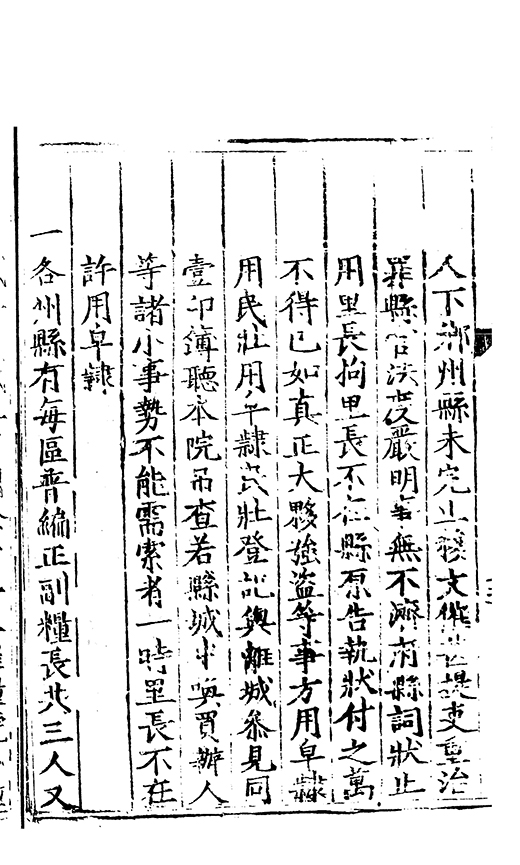 人下鄉州縣未完止移文催提吏重治
罪縣官法度嚴明事無不濟有縣詞狀止
用里長拘里長不在縣原告執狀付之萬
不得已如真正大夥強盜等事方用皁隷
用民壯用皁隷民壯登記與離城參見同
壹印簿聽本院吊查若縣城中喚買辦人
等諸小事勢不能需索者一時里長不在
許用皁隷
一各州縣有每區晋編正副糧長共三人又